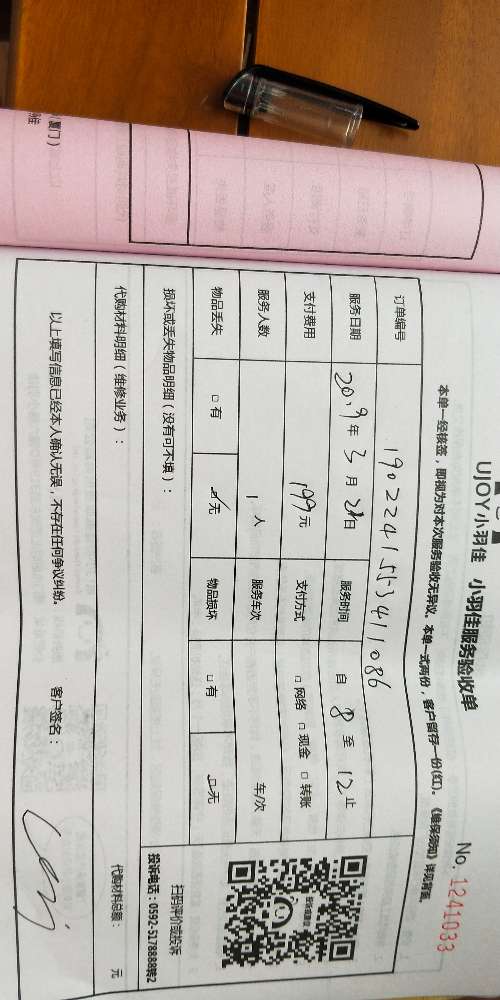 UJOY小羽佳 小羽佳服务验收单
No. 1241033
本单一经核签，即视为对本次服务验收无异议。本单一式两份，客户留存一份(红)。《维保须知》详见背面。
订单编号 1902241553411086
服务日期 2019年3月21日 服务时间 自 8 至 12 止
支付费用 199元 支付方式 □ 网络 □ 现金 □ 转账
服务人数 1 人 服务车次 车/次
物品丢失 □ 有 □ 无 物品损坏 □ 有 □ 无
损坏或丢失物品明细（没有可不填）：
扫码评价或投诉
投诉电话：0592-5178888转2
代购材料明细（维修业务）：
代购材料总额： 元
以上填写信息已经本人确认无误，不存在任何争议纠纷。 客户签名：